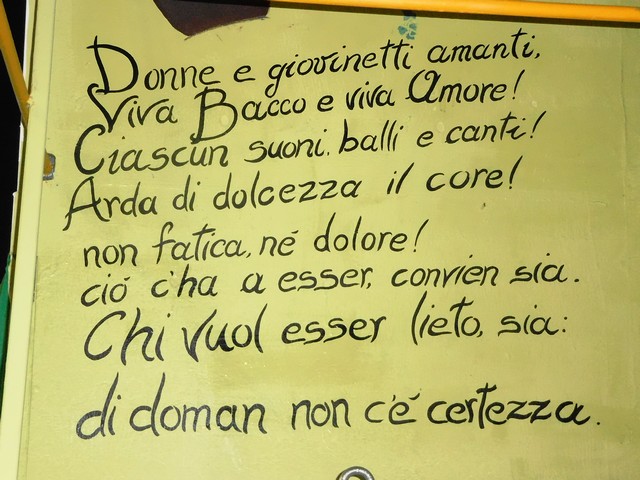 Donne e giovinetti amanti,
Viva Bacco e viva Amore!
Ciascun suoni, balli e canti!
Arda di dolcezza il core!
non fatica, né dolore!
ció c'ha a esser, convien sia.
Chi vuol esser lieto, sia:
di doman non c'é certezza.